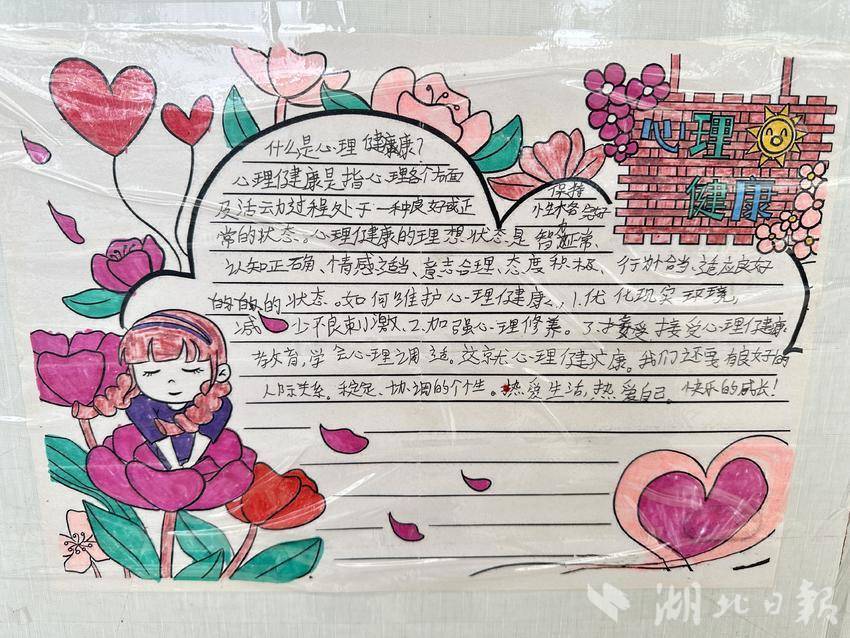 心理
健康
什么是心理健康康?
心理健康是指心理各个方面
及活动过程处于一种良好或正
保持
性格
常的状态。心理健康的理想状态是智力正常、
认知正确、情感适当、意志合理、态度积极、行为恰当、适应良好
的的的状态。如何维护心理健康、1.优化现实环境,
减少不良刺激、2.加强心理修养。3.接受接受心理健康
教育,学会心理调适。这就是心理健康。我们还要有良好的
人际关系。稳定、协调的个性。热爱生活,热爱自己。快乐的成长!
湖北日報